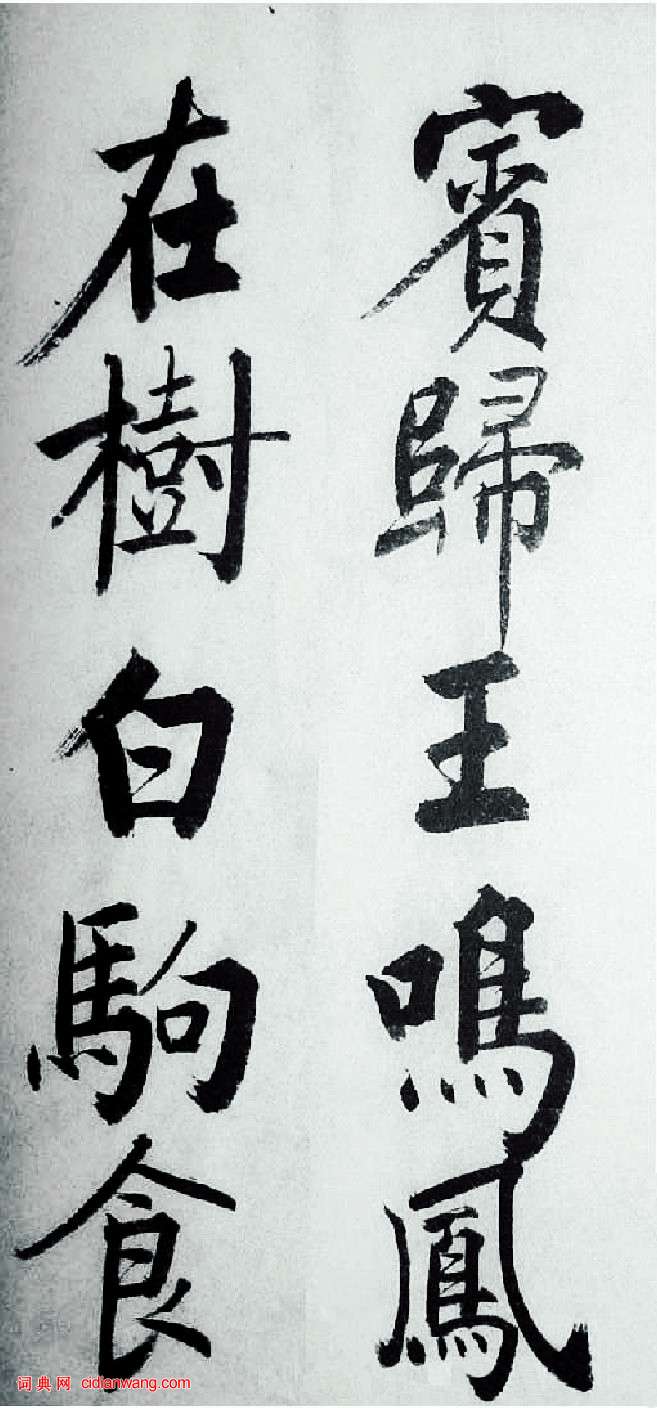 賓歸王鳴鳳
在樹白駒食
词典网 cidianwang.com